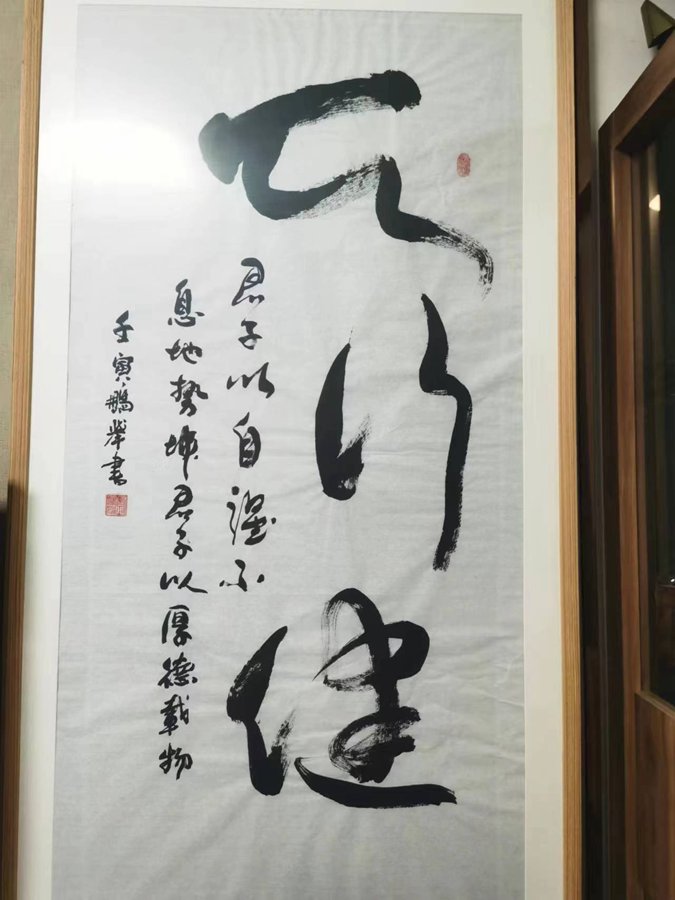 天行健
君子以自强不
息地势坤君子以厚德载物
壬寅鹏举书